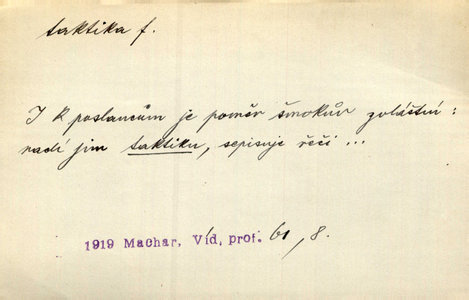 taktika f.
I k poslancům je poměr šmokův zvláštní:
radí jim taktiku, sepisuje řeči ...
1919 Machar, Víd. prof. 61, 8.